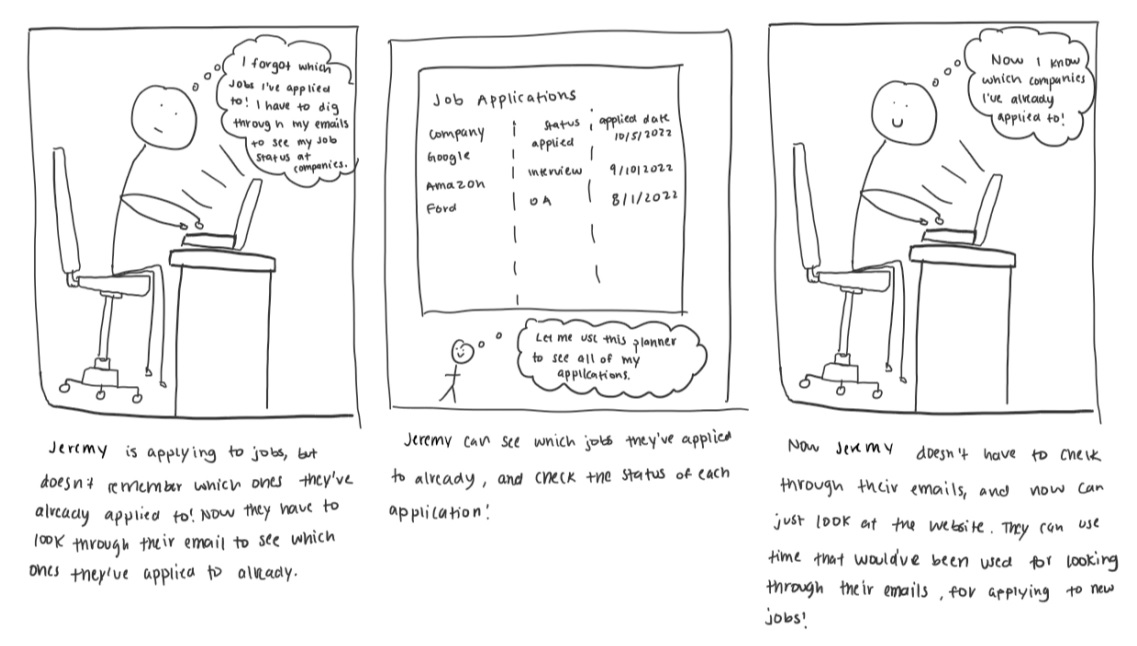 I forgot which
jobs I've applied
to! I have to dig
through my emails
to see my job
status at
companies.
Jeremy is applying to jobs, but
doesn't remember which ones they've
already applied to! Now they have to
look through their email to see which
ones they've applied to already.
Job Applications
Company status applied date
Google applied 10/5/2022
Amazon interview 9/10/2022
Ford OA 8/1/2022
Let me use this planner
to see all of my
applications.
Jeremy can see which jobs they've applied
to already, and check the status of each
application!
Now I know
which companies
I've already
applied to!
Now Jeremy doesn't have to check
through their emails, and now can
just look at the website. They can use
time that would've been used for looking
through their emails, for applying to new
jobs!